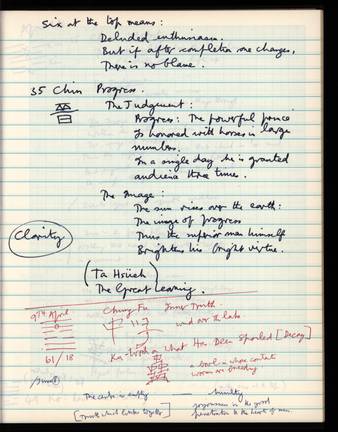 Six at the top means:
Deluded enthusiasm.
But if after completion one changes,
There is no blame.
35 Chin Progress.
The Judgement:
Progress: The powerful prince
Is honored with horses in large
numbers.
In a single day he is granted
audience three times.
The Image:
The sun rises over the earth:
The image of progress
Clarity
Thus the superior man himself
Brightens his bright virtue.
(Ta Hsüeh)
The Great Learning.
9th April
Chung Fu Inner Truth
中 孚 wind over the lake
Ku - work on what Has Been Spoiled [Decay]
61/18
a bowl in whose contents
worms are breeding
The centre is empty humility
[Truth which links together]